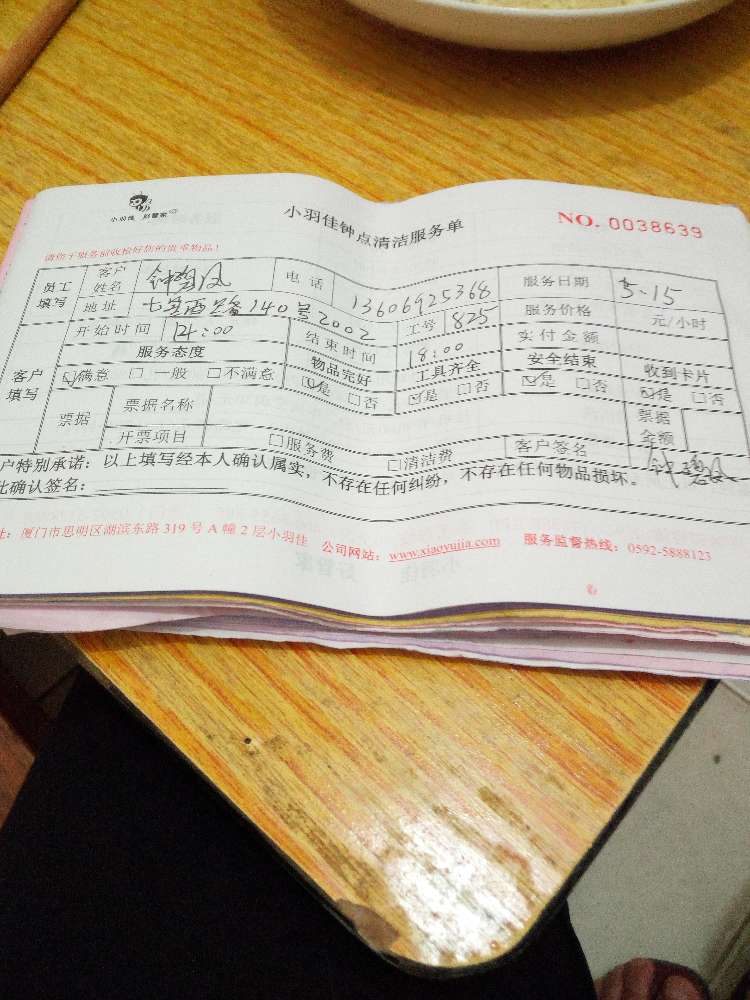 小羽佳 好管家
小羽佳钟点清洁服务单
NO. 0038639
请您于服务前收检好您的贵重物品!
员工填写 客户姓名 电话 13606925368 服务日期 5.15
地址 七星西路140号2002 工号 825 服务价格 元/小时
客户填写 开始时间 14:00 结束时间 18:00 实付金额
服务态度 物品完好 工具齐全 安全结束 收到卡片
☑满意 □一般 □不满意 ☑是 □否 ☑是 □否 ☑是 □否 ☑是 □否
票据 票据名称 票据金额
开票项目 □服务费 □清洁费 客户签名
户特别承诺:以上填写经本人确认属实,不存在任何纠纷,不存在任何物品损坏。
此确认签名:
址:厦门市思明区湖滨东路319号A幢2层小羽佳 公司网站:www.xiaoyujia.com 服务监督热线:0592-5888123